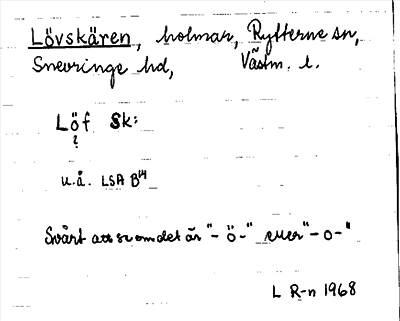 Lövskären, holmar, Rytterne sn,
Snevringe hd, Västm. l.
Löf Sk:
?
u.å. LSA B14
Svårt att se om det är "-ö-" eller "-o-"
L R-n 1968